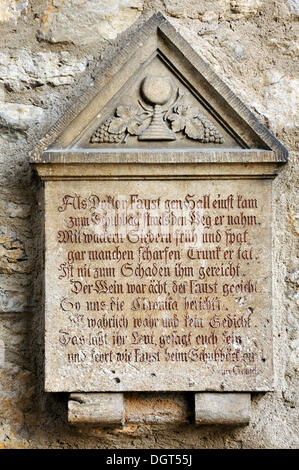 Als Doktor Faust gen Hall einst kam
zum Schuhbäck stracks den Weg er nahm.
Mit wackern Siedern früh und spat
gar manchen scharfen Trunk er tat.
Ist nit zum Schaden ihm gereicht.
Der Wein war ächt, des Faust geeicht
So uns die Chronica bericht.
Ist wahrlich wahr und kein Gedicht.
Das laßt ihr Leut, gesagt euch sein
und kehrt wie Faust beim Schuhbäck ein
alamy
Image ID: DGT55J
www.alamy.com